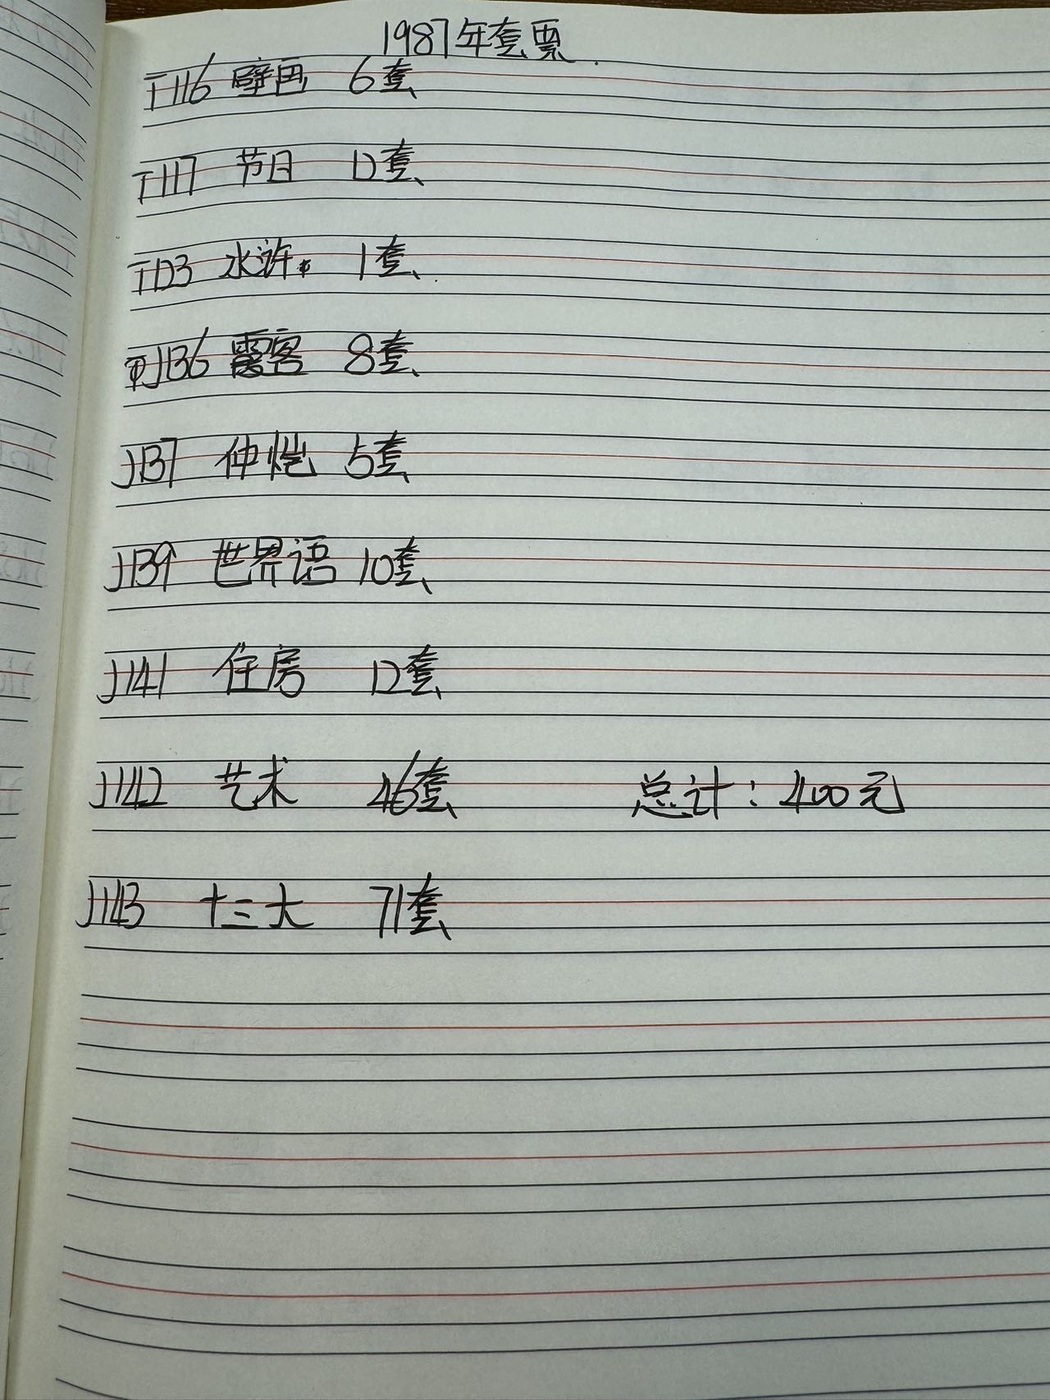 1987年套票
T116 壁画 6套
T117 节日 12套
T123 水浒 1套
J136 霞客 8套
J137 仲恺 5套
J139 世界语 10套
J141 住房 12套
J142 艺术 46套 总计：400元
J143 十三大 71套